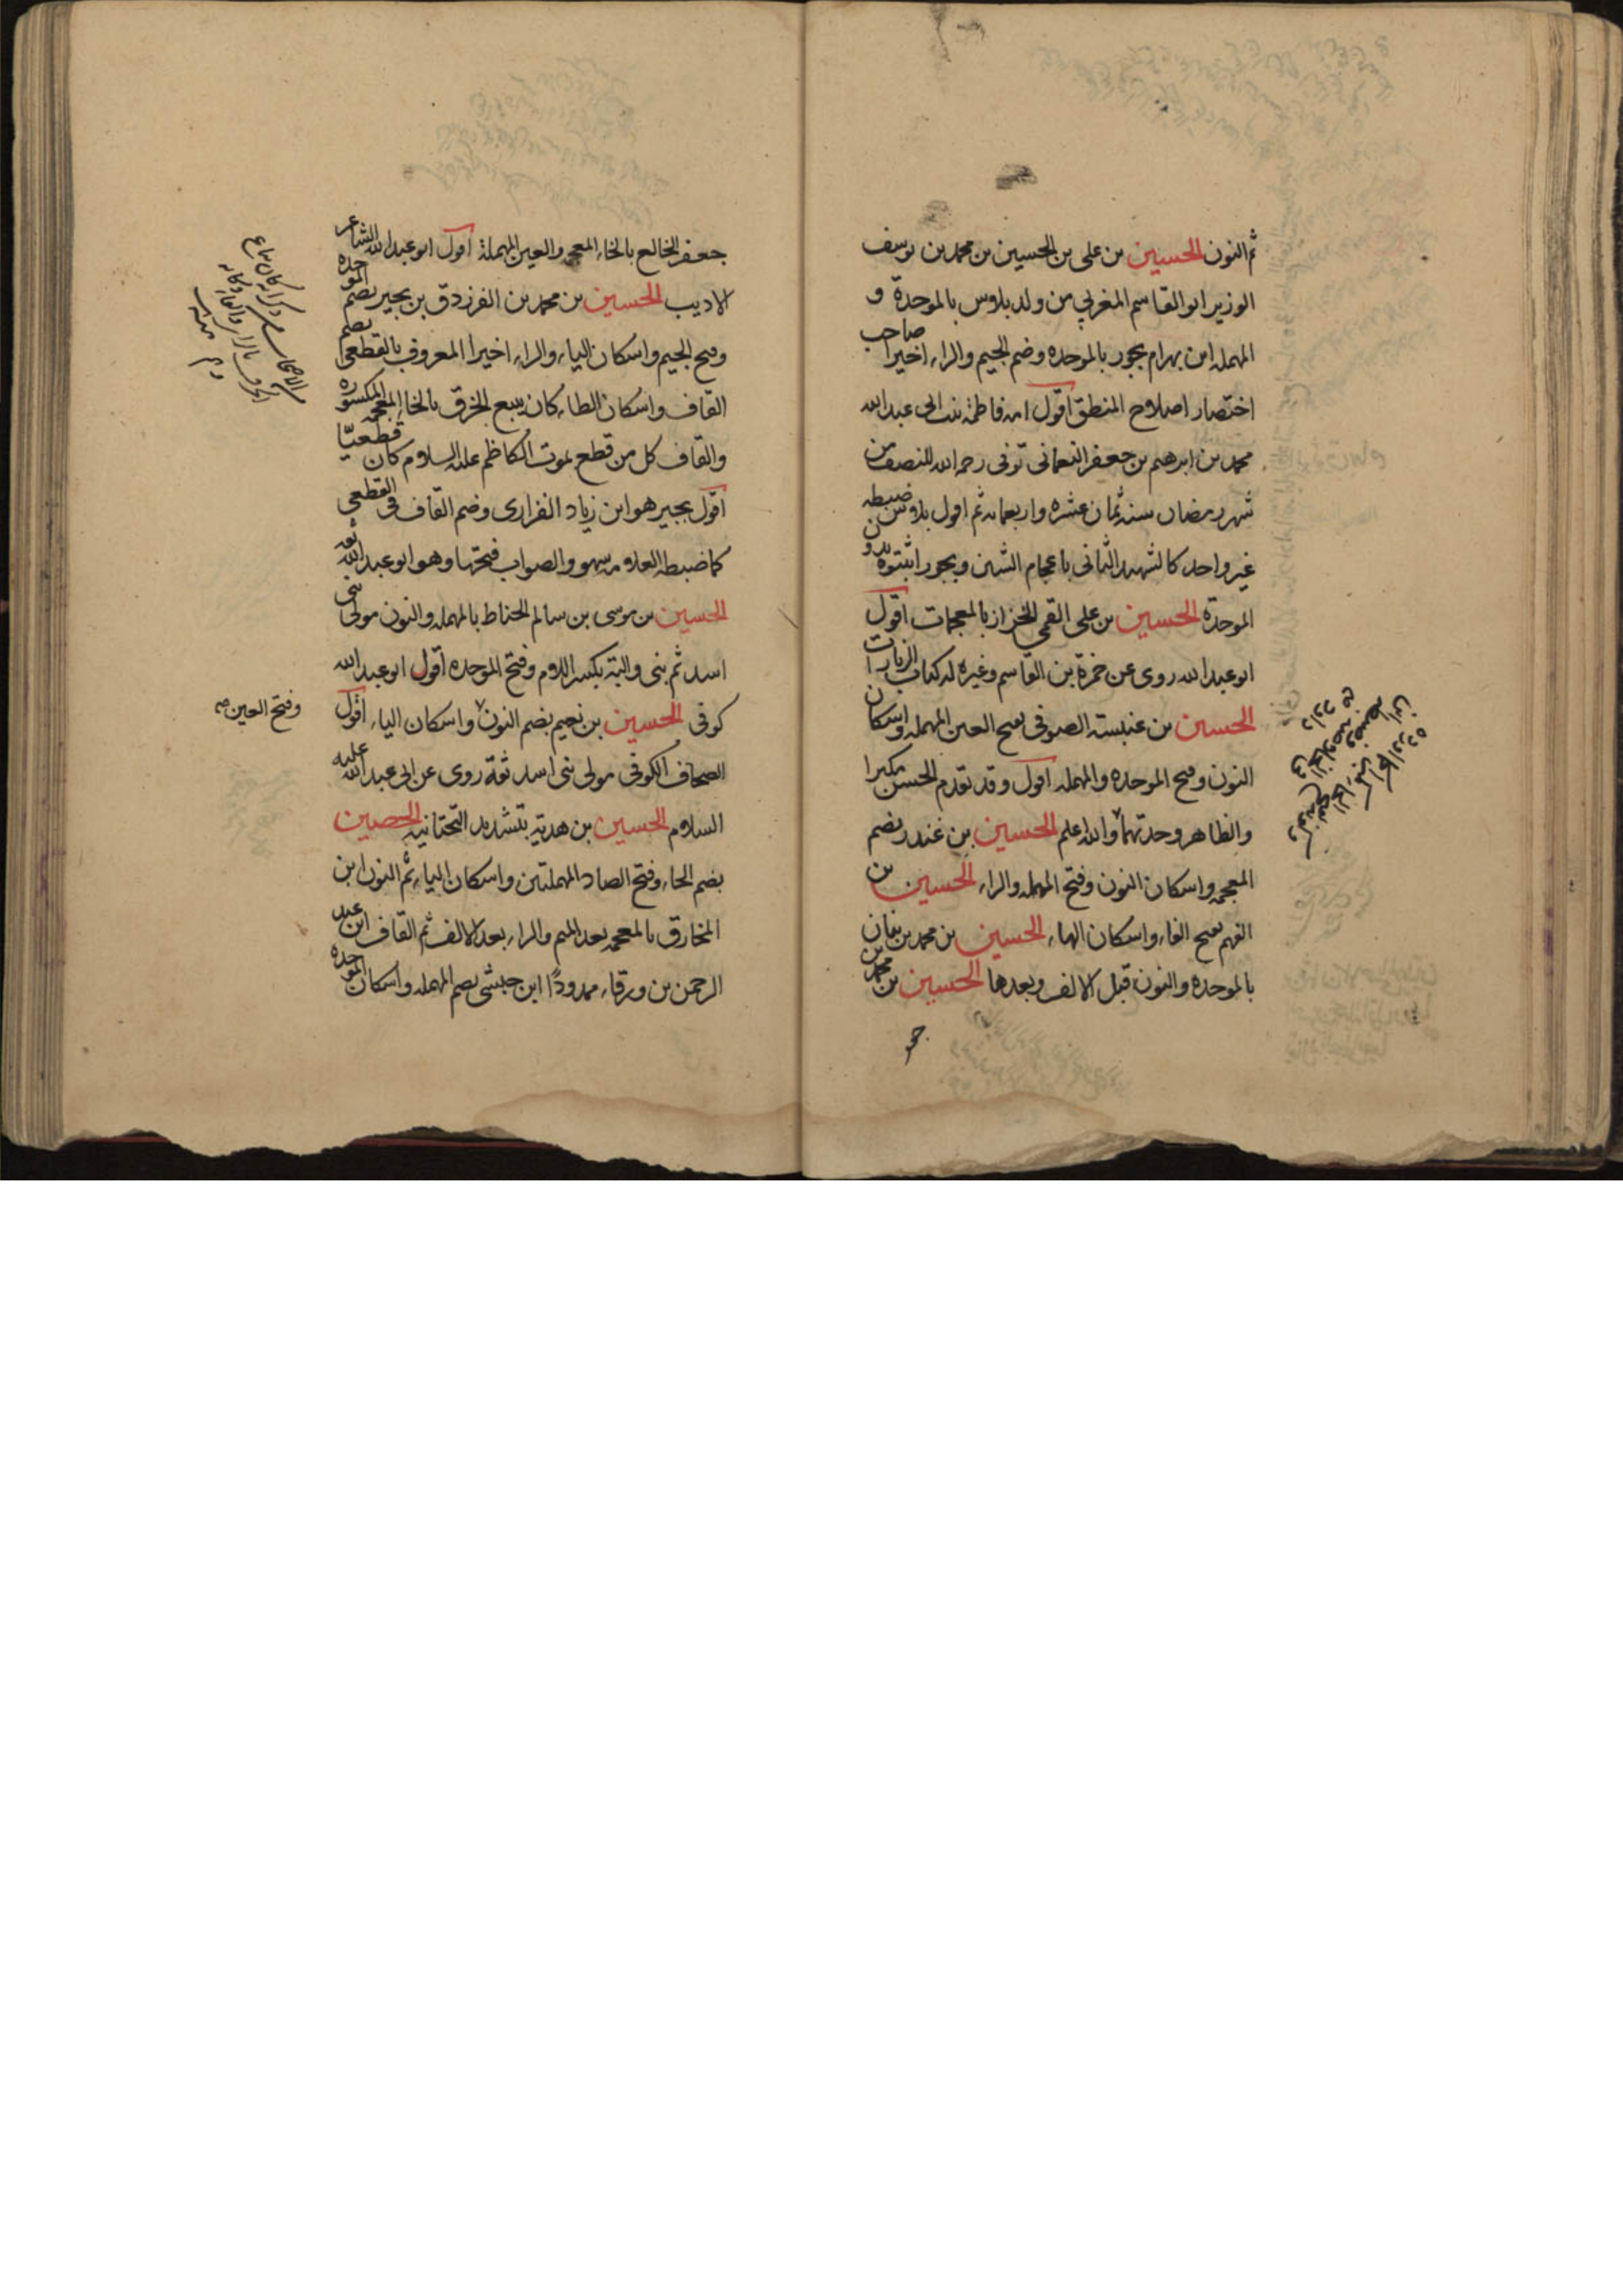 ثم النون الحسين بن على بن الحسين بن محمد بن يوسف
الوزير ابو القاسم المغربي من ولد بلاوس بالموحدة و
المهمله ابن بهرام بجور بالموحده وضم الجيم والراء اخيرا صاحب
اختصار اصلاح المنطق اقول امه فاطمة بنت ابى عبد الله
محمد بن ابرهيم بن جعفر النعمانى توفى رحمه الله للنصف من
شهر رمضان سنه ثمان عشره واربعمائه ثم اقول بلاوش ضبطه
غير واحد كالشهيد الثانى باعجام الشين وبجور اثبتوه بدون
الموحدة الحسين بن على القمى الخزاز بالمعجمات اقول
ابو عبد الله روى عن حمزة بن القاسم وغيره له كتاب الزيارات
الحسين بن عنبسته الصوفى بفتح العين المهمله واسكان
النون وفتح الموحده والمهمله اقول وقد تقدم الحسن مكبرا
والظاهر وحدتهما والله اعلم الحسين بن غندر بضم
المعجمه واسكان النون وفتح المهمله والراء الحسين بن
الفهم بفتح الفاء واسكان الهاء الحسين بن محمد بن بنان
بالموحده والنون قبل الالف وبعدها الحسين بن محمد بن
جعفر الخالع بالخاء المعجمه والعين المهملة اقول ابو عبد الله الشاعر
الاديب الحسين بن محمد بن الفرزدق بن بجير بضم الموحده
وفتح الجيم واسكان الياء والراء اخيرا المعروف بالقطعى بضم
القاف واسكان الطاء كان يبيع الخرق بالخاء المعجمه المكسوره
والقاف كل من قطع بموت الكاظم عليه السلام كان قطعيّا
اقول بجير هو ابن زياد الفزارى وضم القاف فى القطعى
كما ضبطه العلامه سهو والصواب فتحها وهو ابو عبد الله ثقه
الحسين بن موسى بن سالم الحناط بالمهمله والنون مولى بنى
اسد ثم بنى والبة بكسر اللام وفتح الموحده اقول ابو عبد الله
كوفى الحسين بن نعيم بضم النون واسكان الياء اقول
وفتح العين صح
الصحاف الكوفى مولى بنى اسد ثقة روى عن ابى عبد الله عليه
السلام الحسين بن هدية بتشديد التحتانيه الحصين
بضم الحاء وفتح الصاد المهملتين واسكان الياء ثم النون ابن
المخارق بالمعجمه بعد الميم والراء بعد الالف ثم القاف ابن عبد
الرحمن بن ورقاء ممدودًا ابن حبشى بضم المهمله واسكان الموحده